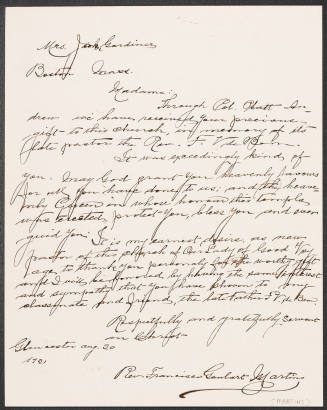 Mrs. Jack Gardiner
Boston Mass.
Madame:
Through Col. Piatt An-
drew we have received your precious
gift to this Church, in memory of its
late pastor the Rev. F. V. de Bem.
It was exceedingly kind of
you. May God grant you heavenly favours
for all you have done to us; and the heav-
enly Queen in whose honour this temple
was erected, protect you, bless you and ever
guard you! It is my earnest desire, as new
pastor of this church of Our Lady of Good Voy-
age to thank you personally for the worthy gift
and I will be honored by having the same interest
and sympathy that you have shown to my
classmate and friend, the late Father F. V. de Bem.
Respectfully and gratefully servant
in Christ
Gloucester Aug. 20
1921
Rev. Francisco Goulart Martins
[MARTINS]